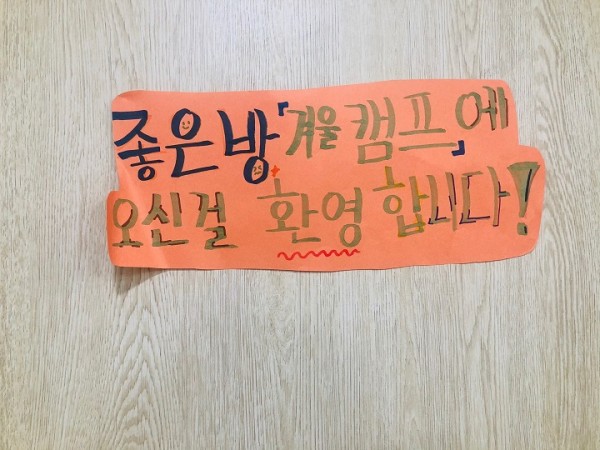 좋은방「겨울캠프」에
오신걸 환영합니다!